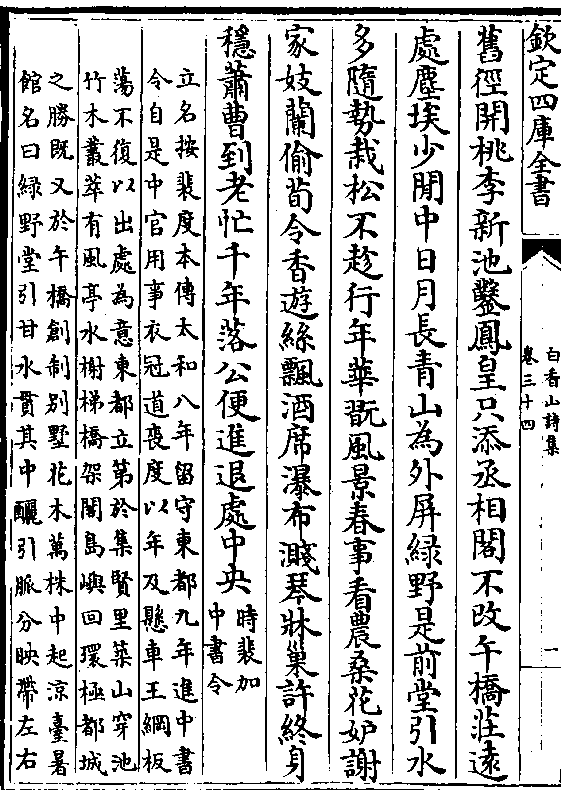 欽定四庫全書
白香山詩集
卷三十四
一
舊徑開桃李新池鑿鳳皇只添丞相閣不改午橋莊遠
處塵埃少閒中日月長青山為外屏緑野是前堂引水
多隨勢栽松不趁行年華翫風景春事看農桑花妒謝
家妓蘭偷荀令香遊絲飄酒席瀑布濺琴牀巢許終身
穩蕭曹到老忙千年落公便進退處中央
時裴加
中書令
立名按裴度本傳太和八年留守東都九年進中書
令自是中官用事衣冠道喪度以年及懸車王綱板
蕩不復以出處為意東都立第於集賢里築山穿池
竹木叢萃有風亭水榭梯橋架閣島嶼回環極都城
之勝既又於午橋創制别墅花木萬株中起涼臺暑
館名曰緑野堂引甘水貫其中釃引脈分映帶左右